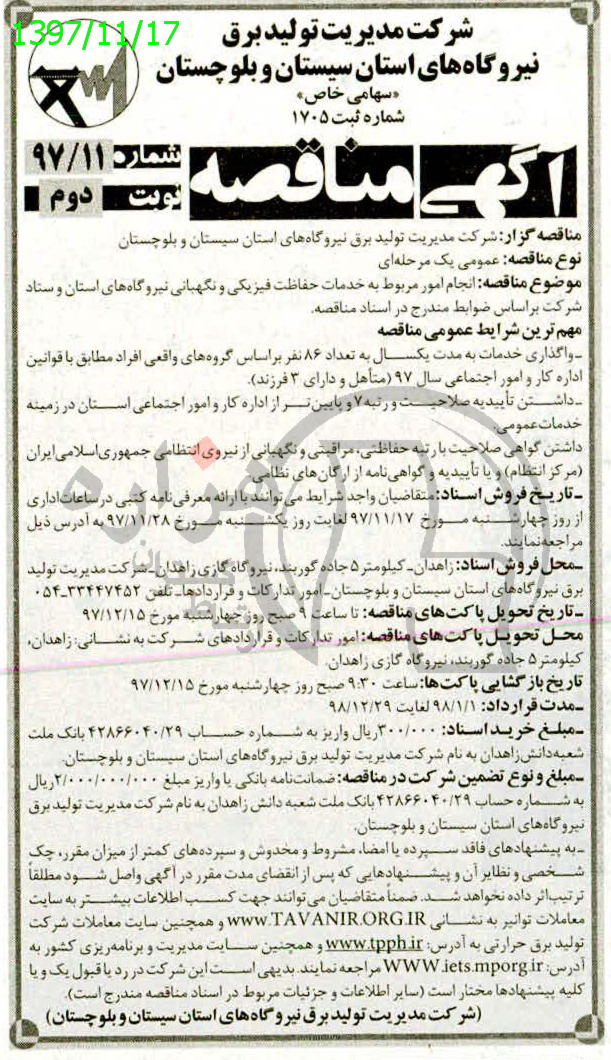 1397/11/17
شرکت مدیریت تولید برق
نیروگاه‌های استان سیستان و بلوچستان
«سهامی خاص»
شماره ثبت ۱۷۰۵
آگهی مناقصه
شماره ۹۷/۱۱
نوبت دوم
مناقصه گزار: شرکت مدیریت تولید برق نیروگاه‌های استان سیستان و بلوچستان
نوع مناقصه: عمومی یک مرحله‌ای
موضوع مناقصه: انجام امور مربوط به خدمات حفاظت فیزیکی و نگهبانی نیروگاه‌های استان و ستاد
شرکت براساس ضوابط مندرج در اسناد مناقصه.
مهم ترین شرایط عمومی مناقصه
ـ واگذاری خدمات به مدت یکسال به تعداد ۸۶ نفر براساس گروه‌های واقعی افراد مطابق با قوانین
اداره کار و امور اجتماعی سال ۹۷ (متأهل و دارای ۳ فرزند).
ـ داشتن تأییدیه صلاحیت و رتبه ۷ و پایین‌تر از اداره کار و امور اجتماعی استان در زمینه
خدمات عمومی.
داشتن گواهی صلاحیت با رتبه حفاظتی، مراقبتی و نگهبانی از نیروی انتظامی جمهوری اسلامی ایران
(مرکز انتظام) و یا تأییدیه و گواهی‌نامه از ارگان‌های نظامی
ـ تاریخ فروش اسناد: متقاضیان واجد شرایط می‌توانند با ارائه معرفی‌نامه کتبی در ساعات اداری
از روز چهارشنبه مورخ ۹۷/۱۱/۱۷ لغایت روز یکشنبه مورخ ۹۷/۱۱/۲۸ به آدرس ذیل
مراجعه نمایند.
ـ محل فروش اسناد: زاهدان ـ کیلومتر ۵ جاده گوربند، نیروگاه گازی زاهدان ـ شرکت مدیریت تولید
برق نیروگاه‌های استان سیستان و بلوچستان ـ امور تدارکات و قراردادها ـ تلفن ۳۳۴۴۷۴۵۲ـ۰۵۴
ـ تاریخ تحویل پاکت‌های مناقصه: تا ساعت ۹ صبح روز چهارشنبه مورخ ۹۷/۱۲/۱۵
محل تحویل پاکت‌های مناقصه: امور تدارکات و قراردادهای شرکت به نشانی: زاهدان،
کیلومتر ۵ جاده گوربند، نیروگاه گازی زاهدان.
تاریخ بازگشایی پاکت‌ها: ساعت ۹:۳۰ صبح روز چهارشنبه مورخ ۹۷/۱۲/۱۵
ـ مدت قرارداد: ۹۸/۱/۱ لغایت ۹۸/۱۲/۲۹
ـ مبلغ خرید اسناد: ۳۰۰/۰۰۰ ریال واریز به شماره حساب ۴۲۸۶۶۰۴۰/۲۹ بانک ملت
شعبه دانش زاهدان به نام شرکت مدیریت تولید برق نیروگاه‌های استان سیستان و بلوچستان.
ـ مبلغ و نوع تضمین شرکت در مناقصه: ضمانت‌نامه بانکی یا واریز مبلغ ۲/۰۰۰/۰۰۰/۰۰۰ ریال
به شماره حساب ۴۲۸۶۶۰۴۰/۲۹ بانک ملت شعبه دانش زاهدان به نام شرکت مدیریت تولید برق
نیروگاه‌های استان سیستان و بلوچستان.
ـ به پیشنهادهای فاقد سپرده یا امضا، مشروط و مخدوش و سپرده‌های کمتر از میزان مقرر، چک
شخصی و نظایر آن و پیشنهادهایی که پس از انقضای مدت مقرر در آگهی واصل شود مطلقاً
ترتیب اثر داده نخواهد شد. ضمناً متقاضیان می‌توانند جهت کسب اطلاعات بیشتر به سایت
معاملات توانیر به نشانی www.TAVANIR.ORG.IR و همچنین سایت معاملات شرکت
تولید برق حرارتی به آدرس: www.tpph.ir و همچنین سایت مدیریت و برنامه‌ریزی کشور به
آدرس: WWW.iets.mporg.ir مراجعه نمایند. بدیهی است این شرکت در رد یا قبول یک و یا
کلیه پیشنهادها مختار است (سایر اطلاعات و جزئیات مربوط در اسناد مناقصه مندرج است).
(شرکت مدیریت تولید برق نیروگاه‌های استان سیستان و بلوچستان)